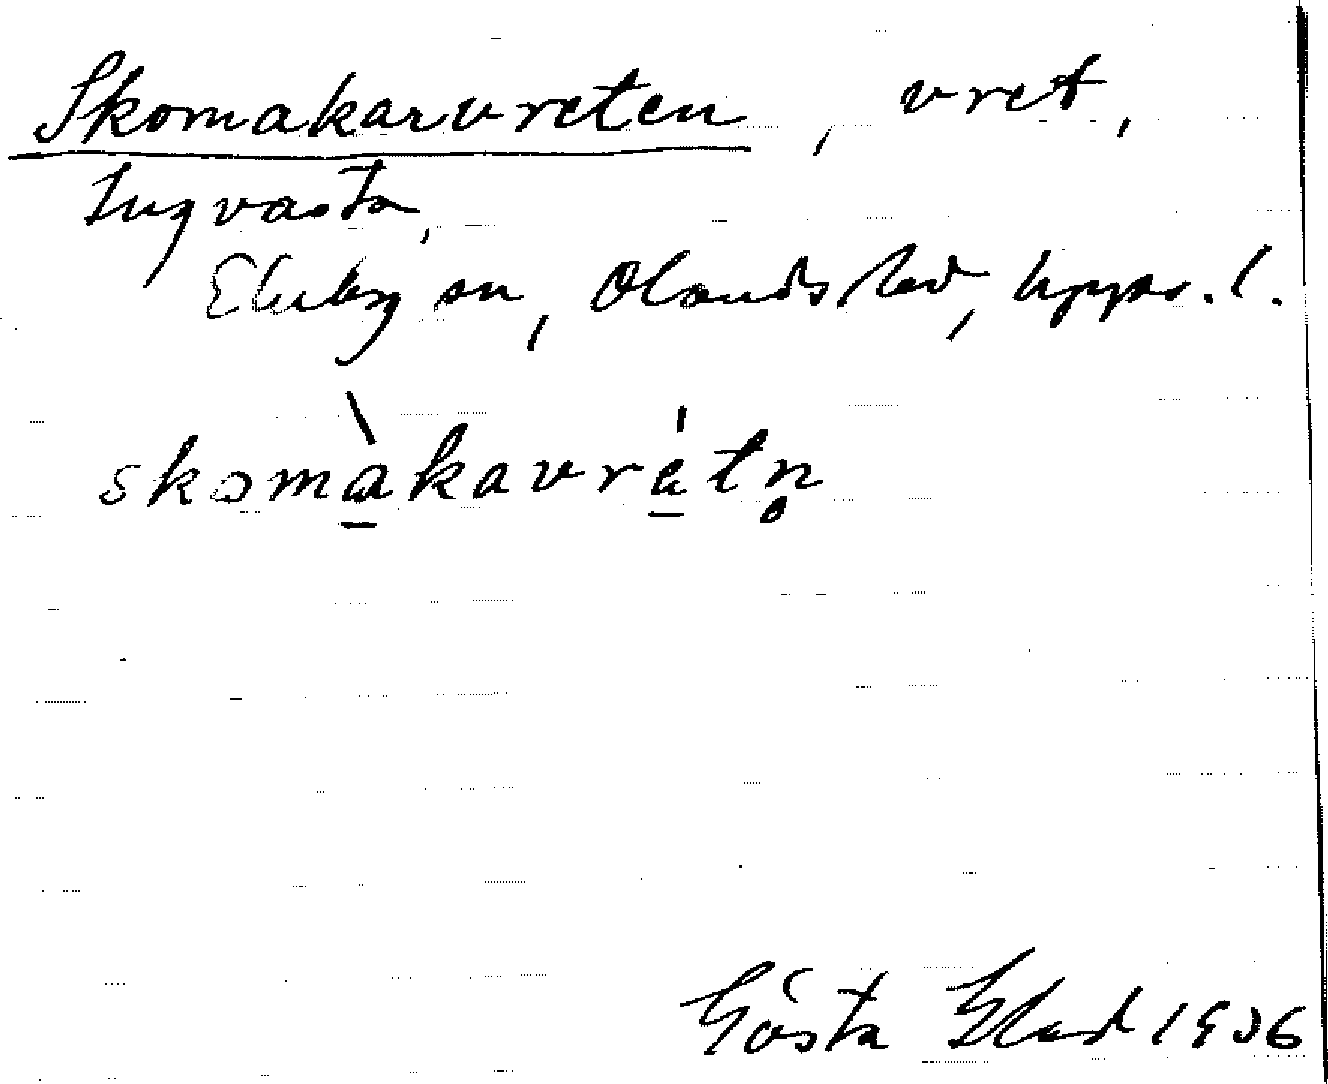 Skomakarvreten, vret,
Ingvasta,
Ekeby sn, Olands hd, Upps. l.
skomàkavrétn̥
Gösta Blad 1936